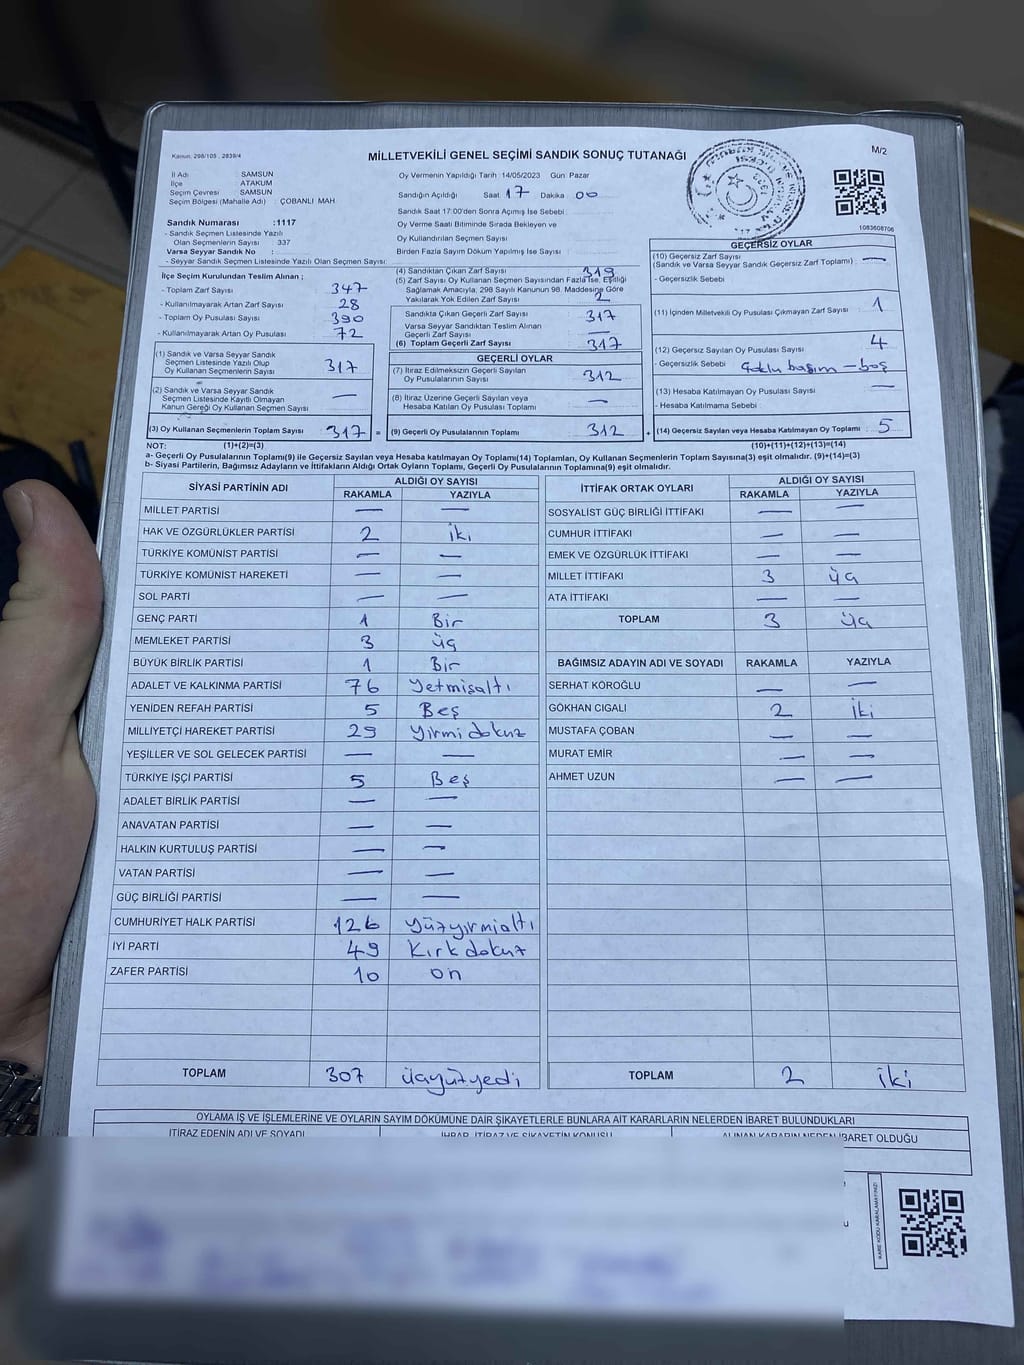 Kanun: 298/105 , 2839/4
MİLLETVEKİLİ GENEL SEÇİMİ SANDIK SONUÇ TUTANAĞI
M/2
İl Adı SAMSUN
İlçe ATAKUM
Seçim Çevresi SAMSUN
Seçim Bölgesi (Mahalle Adı) : ÇOBANLI MAH
Oy Vermenin Yapıldığı Tarih 14/05/2023 Gün: Pazar
Sandığın Açıldığı Saat: 17 Dakika: 00
Sandık Saat 17:00'den Sonra Açımış İse Sebebi :
Oy Verme Saati Bitiminde Sırada Bekleyen ve
Oy Kullandırılan Seçmen Sayısı
Birden Fazla Sayım Dökum Yapılmış İse Sayısı :
1083608706
Sandık Numarası :1117
- Sandık Seçmen Listesinde Yazılı
Olan Seçmenlerin Sayısı : 337
Varsa Seyyar Sandık No :
- Seyyar Sandık Seçmen Listesinde Yazılı Olan Seçmen Sayısı:
İlçe Seçim Kurulundan Teslim Alınan ;
- Toplam Zarf Sayısı 347
- Kullanılmayarak Artan Zarf Sayısı : 28
- Toplam Oy Pusulası Sayısı : 390
- Kullanılmayarak Artan Oy Pusulası : 72
(1) Sandık ve Varsa Seyyar Sandık
Seçmen Listesinde Yazılı Olup
Oy Kullanan Seçmenlerin Sayısı : 317
(2) Sandık ve Varsa Seyyar Sandık
Seçmen Listesinde Kayıtlı Olmayan
Kanun Gereği Oy Kullanan Seçmen Sayısı : —
(3) Oy Kullanan Seçmenlerin Toplam Sayısı : 317 =
(4) Sandıktan Çıkan Zarf Sayısı : 319
(5) Zarf Sayısı Oy Kullanan Seçmen Sayısından Fazla İse, Eşitliği
Sağlamak Amacıyla; 298 Sayılı Kanunun 98. Maddesine Göre
Yakılarak Yok Edilen Zarf Sayısı : 2
Sandıkta Çıkan Geçerli Zarf Sayısı : 317
Varsa Seyyar Sandıktan Teslim Alınan
Geçerli Zarf Sayısı : —
(6) Toplam Geçerli Zarf Sayısı : 317
GEÇERLİ OYLAR
(7) İtiraz Edilmeksizin Geçerli Sayılan
Oy Pusulalarının Sayısı : 312
(8) İtiraz Üzerine Geçerli Sayılan veya
Hesaba Katılan Oy Pusulası Toplamı : —
(9) Geçerli Oy Pusulalarının Toplamı : 312 +
GEÇERSİZ OYLAR
(10) Geçersiz Zarf Sayısı
(Sandık ve Varsa Seyyar Sandık Geçersiz Zarf Toplamı) : —
- Geçersizlik Sebebi :
(11) İçinden Milletvekili Oy Pusulası Çıkmayan Zarf Sayısı : 1
(12) Geçersiz Sayılan Oy Pusulası Sayısı : 4
- Geçersizlik Sebebi : Çoklu basım — boş
(13) Hesaba Katılmayan Oy Pusulası Sayısı : —
- Hesaba Katılmama Sebebi :
(14) Geçersiz Sayılan veya Hesaba Katılmayan Oy Toplamı : 5
NOT: (1)+(2)=(3) (10)+(11)+(12)+(13)=(14)
a- Geçerli Oy Pusulalarının Toplamı(9) ile Geçersiz Sayılan veya Hesaba katılmayan Oy Toplamı(14) Toplamları, Oy Kullanan Seçmenlerin Toplam Sayısına(3) eşit olmalıdır. (9)+(14)=(3)
b- Siyasi Partilerin, Bağımsız Adayların ve İttifakların Aldığı Ortak Oyların Toplamı, Geçerli Oy Pusulalarının Toplamına(9) eşit olmalıdır.
SİYASİ PARTİNİN ADI ALDIĞI OY SAYISI
RAKAMLA YAZIYLA
MİLLET PARTİSİ — —
HAK VE ÖZGÜRLÜKLER PARTİSİ 2 iki
TÜRKİYE KOMÜNİST PARTİSİ — —
TÜRKİYE KOMÜNİST HAREKETİ — —
SOL PARTİ — —
GENÇ PARTİ 1 Bir
MEMLEKET PARTİSİ 3 üç
BÜYÜK BİRLİK PARTİSİ 1 Bir
ADALET VE KALKINMA PARTİSİ 76 Yetmişaltı
YENİDEN REFAH PARTİSİ 5 Beş
MİLLİYETÇİ HAREKET PARTİSİ 29 Yirmi dokuz
YEŞİLLER VE SOL GELECEK PARTİSİ — —
TÜRKİYE İŞÇİ PARTİSİ 5 Beş
ADALET BİRLİK PARTİSİ — —
ANAVATAN PARTİSİ — —
HALKIN KURTULUŞ PARTİSİ — —
VATAN PARTİSİ — —
GÜÇ BİRLİĞİ PARTİSİ — —
CUMHURİYET HALK PARTİSİ 126 Yüzyirmialtı
İYİ PARTİ 49 Kırk dokuz
ZAFER PARTİSİ 10 on
TOPLAM 307 üçyüzyedi
İTTİFAK ORTAK OYLARI ALDIĞI OY SAYISI
RAKAMLA YAZIYLA
SOSYALİST GÜÇ BİRLİĞİ İTTİFAKI — —
CUMHUR İTTİFAKI — —
EMEK VE ÖZGÜRLÜK İTTİFAKI — —
MİLLET İTTİFAKI 3 üç
ATA İTTİFAKI — —
TOPLAM 3 üç
BAĞIMSIZ ADAYIN ADI VE SOYADI RAKAMLA YAZIYLA
SERHAT KÖROĞLU — —
GÖKHAN CIGALI 2 iki
MUSTAFA ÇOBAN — —
MURAT EMİR — —
AHMET UZUN — —
TOPLAM 2 iki
OYLAMA İŞ VE İŞLEMLERİNE VE OYLARIN SAYIM DÖKÜMÜNE DAİR ŞİKAYETLERLE BUNLARA AİT KARARLARIN NELERDEN İBARET BULUNDUKLARI
İTİRAZ EDENİN ADI VE SOYADI İHBAR, İTİRAZ VE ŞİKAYETİN KONUSU ALINAN KARARIN NEDEN İBARET OLDUĞU
KARE KODU KARALAMAYINIZ!